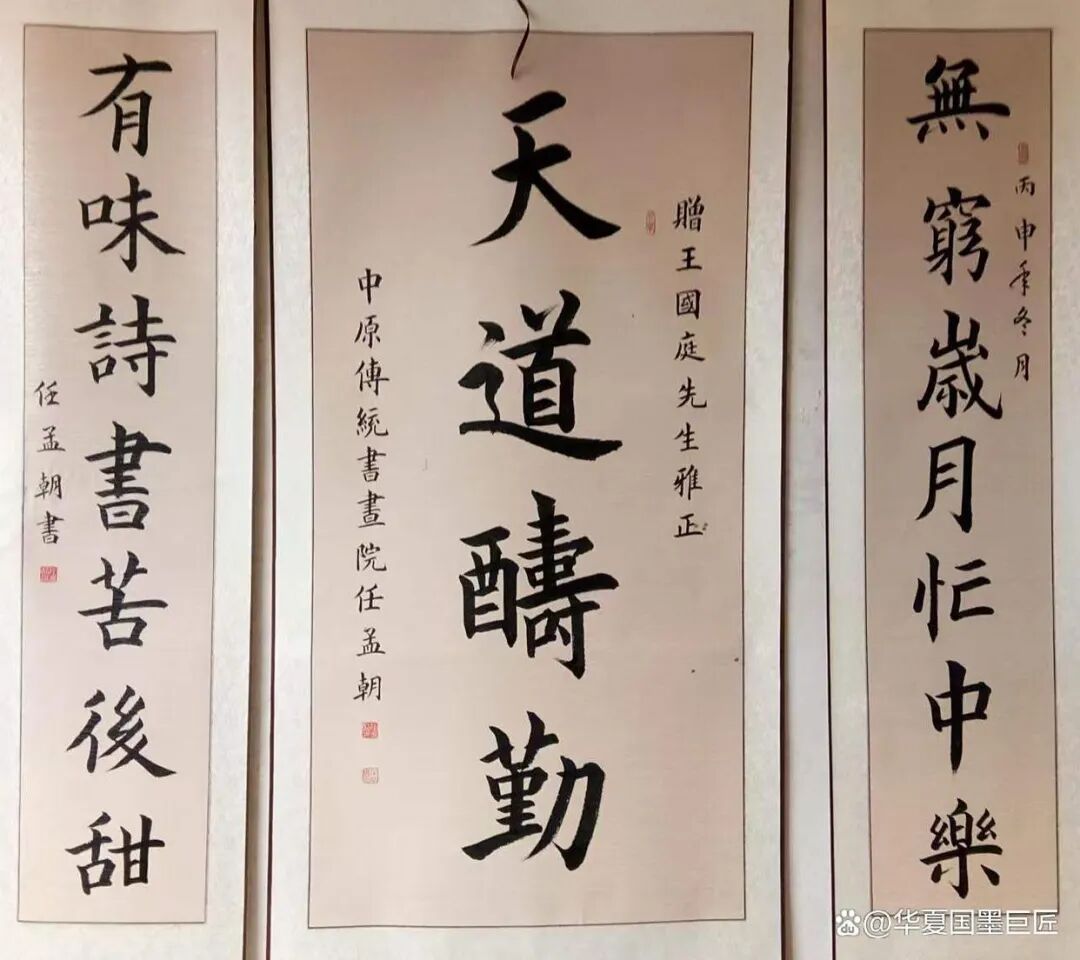 無窮歲月忙中樂
丙申年冬月
贈王國庭先生雅正
天道醻勤
中原傳統書畫院任孟朝
有味詩書苦後甜
任孟朝書
@华夏国墨巨匠